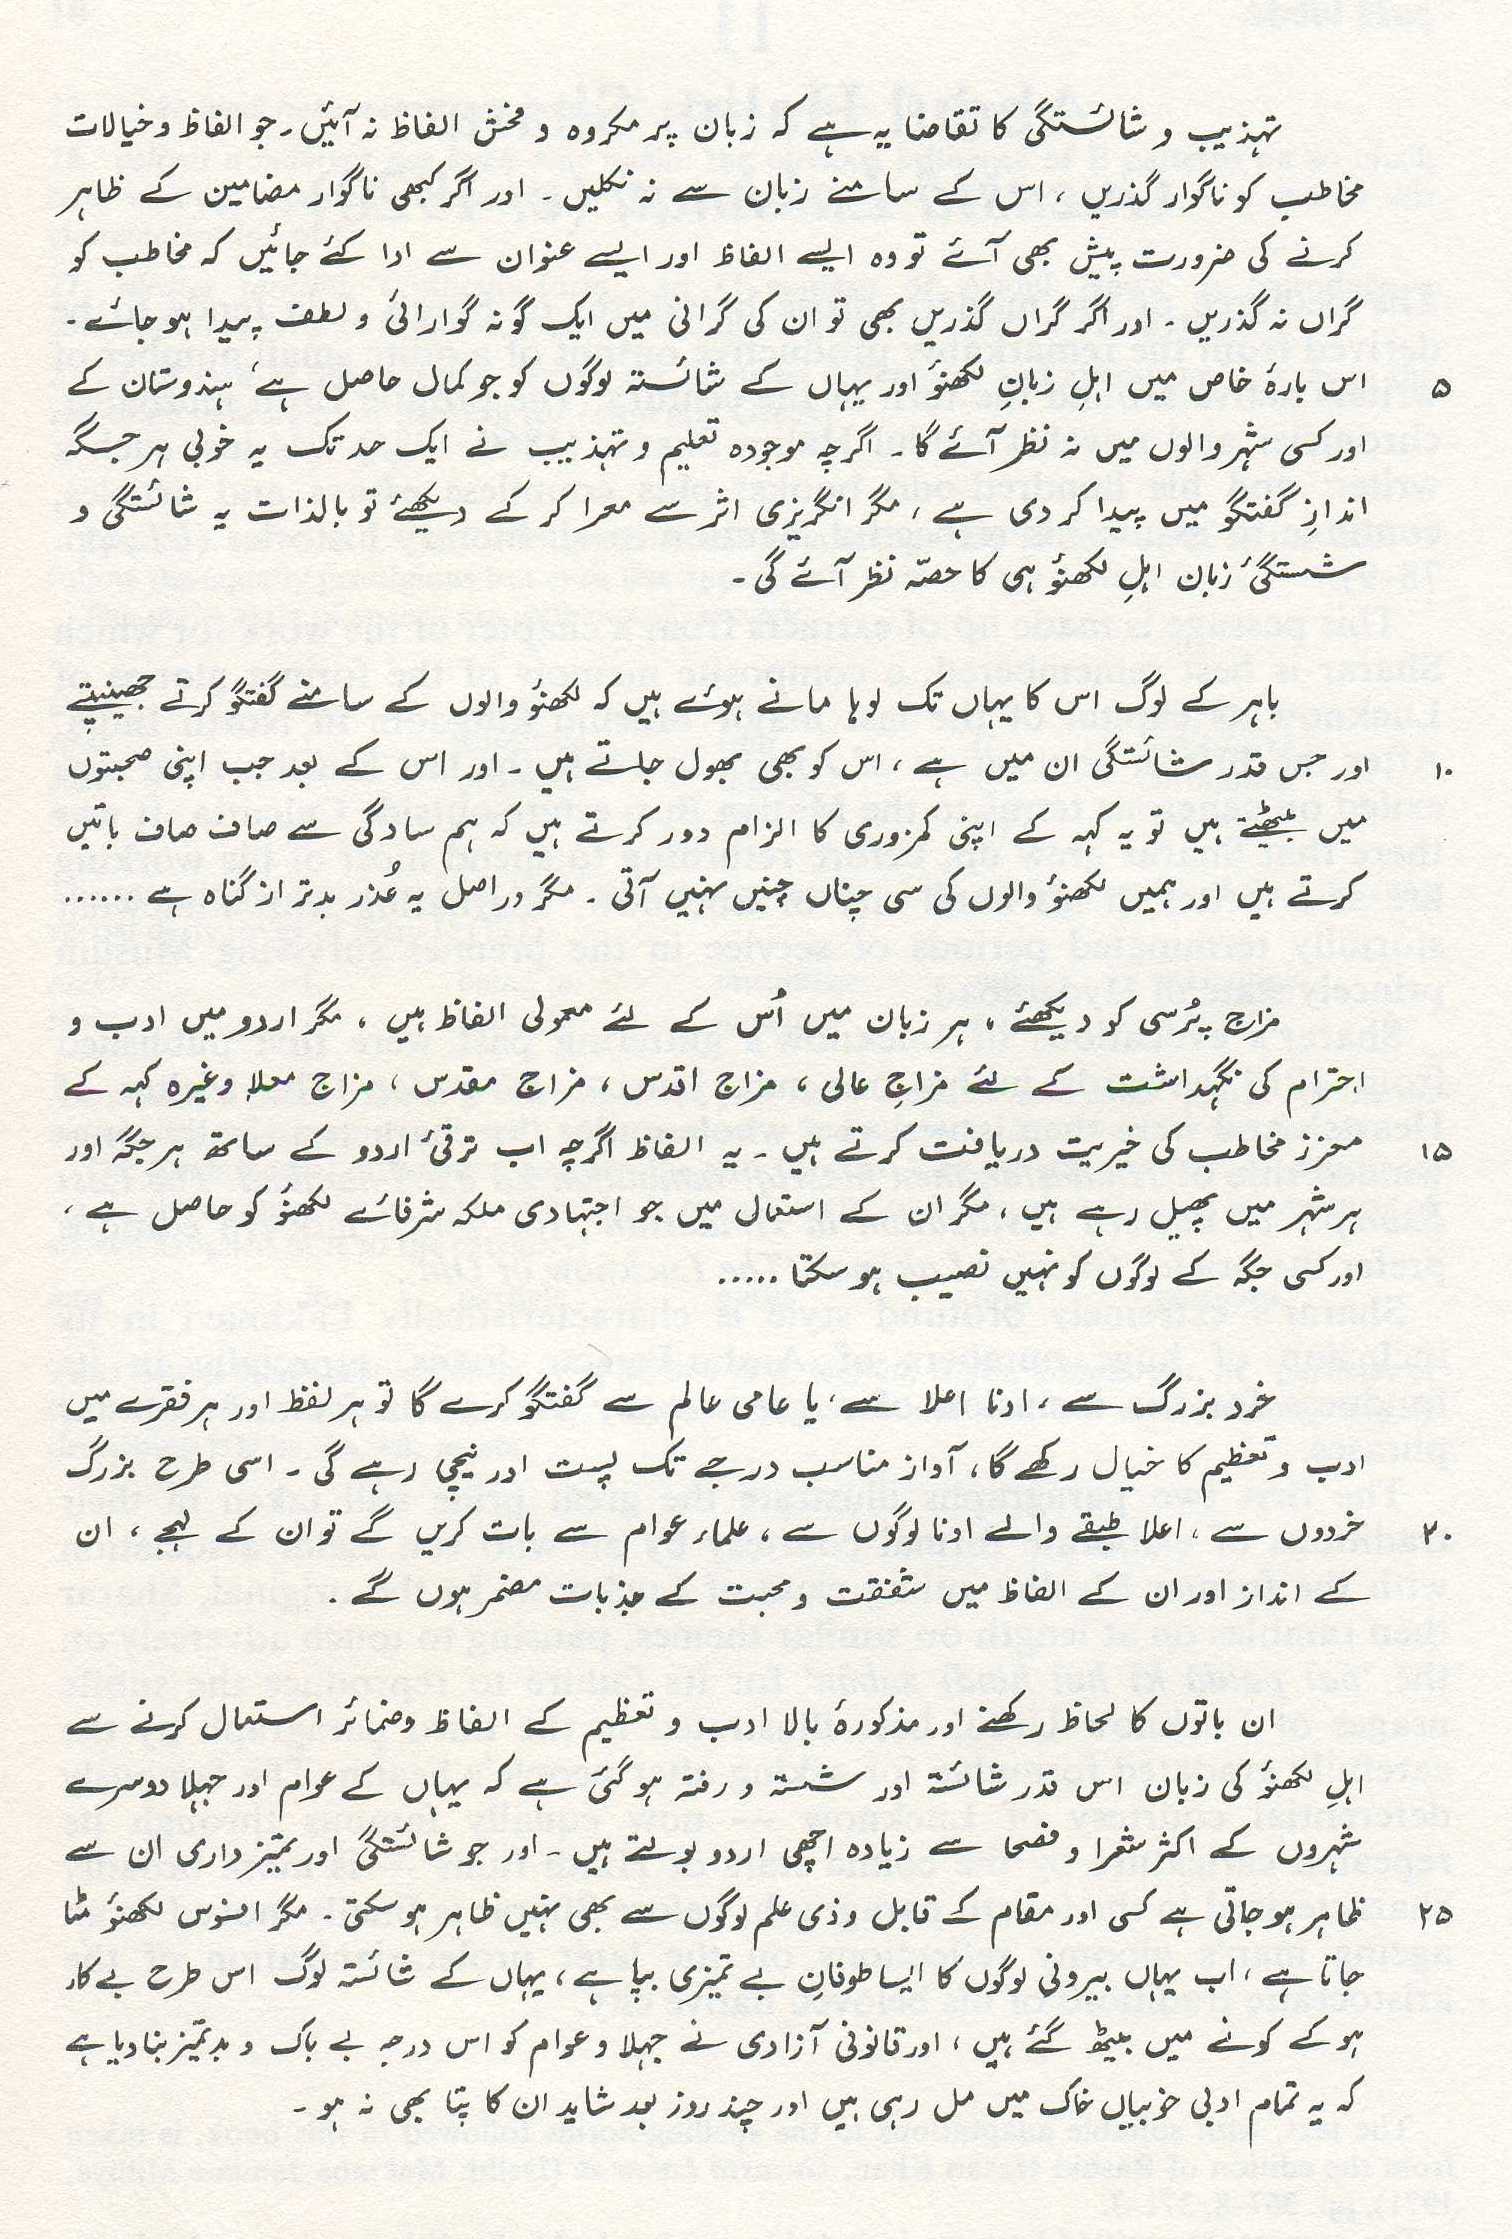 تہذیب و شائستگی کا تقاضا یہ ہے کہ زبان پر مکروہ و فحش الفاظ نہ آئیں۔ جو الفاظ و خیالات
مخاطب کو ناگوار گذریں ، اس کے سامنے زبان سے نہ نکلیں۔ اور اگر کبھی ناگوار مضامین کے ظاہر
کرنے کی ضرورت پیش بھی آئے تو وہ ایسے الفاظ اور ایسے عنوان سے ادا کئے جائیں کہ مخاطب کو
گراں نہ گذریں۔ اور اگر گراں گذریں بھی تو ان کی گرانی میں ایک گونہ گوارائی و لطف پیدا ہو جائے۔
۵ اس بارۂ خاص میں اہلِ زبانِ لکھنؤ اور یہاں کے شائستہ لوگوں کو جو کمال حاصل ہے، ہندوستان کے
اور کسی شہر والوں میں نہ نظر آئے گا۔ اگرچہ موجودہ تعلیم و تہذیب نے ایک حد تک یہ خوبی ہر جگہ
اندازِ گفتگو میں پیدا کر دی ہے ، مگر انگریزی اثر سے معرا کر کے دیکھئے تو بالذات یہ شائستگی و
شستگیٔ زبان اہلِ لکھنؤ ہی کا حصّہ نظر آئے گی۔
باہر کے لوگ اس کا یہاں تک لوہا مانے ہوئے ہیں کہ لکھنؤ والوں کے سامنے گفتگو کرتے جھینپتے
۱۰ اور جس قدر شائستگی ان میں ہے ، اس کو بھی بھول جاتے ہیں۔ اور اس کے بعد جب اپنی صحبتوں
میں بیٹھتے ہیں تو یہ کہہ کے اپنی کمزوری کا الزام دور کرتے ہیں کہ ہم سادگی سے صاف صاف باتیں
کرتے ہیں اور ہمیں لکھنؤ والوں کی سی چناں چنیں نہیں آتی۔ مگر دراصل یہ عُذر بدتر از گناہ ہے ......
مزاج پُرسی کو دیکھئے ، ہر زبان میں اُس کے لئے معمولی الفاظ ہیں ، مگر اردو میں ادب و
احترام کی نگہداشت کے لئے مزاجِ عالی ، مزاج اقدس ، مزاج مقدس ، مزاج معلا وغیرہ کہہ کے
۱۵ معزز مخاطب کی خیریت دریافت کرتے ہیں۔ یہ الفاظ اگرچہ اب ترقیٔ اردو کے ساتھ ہر جگہ اور
ہر شہر میں پھیل رہے ہیں ، مگر ان کے استعمال میں جو اجتہادی ملکہ شرفائے لکھنؤ کو حاصل ہے ،
اور کسی جگہ کے لوگوں کو نہیں نصیب ہو سکتا .....
خرد بزرگ سے ، ادنا اعلا سے ، یا عامی عالم سے گفتگو کرے گا تو ہر لفظ اور ہر فقرے میں
ادب و تعظیم کا خیال رکھے گا ، آواز مناسب درجے تک پست اور نیچی رہے گی۔ اسی طرح بزرگ
۲۰ خردوں سے ، اعلا طبقے والے ادنا لوگوں سے ، علماء عوام سے بات کریں گے تو ان کے لہجے ، ان
کے انداز اور ان کے الفاظ میں شفقت و محبت کے جذبات مضمر ہوں گے۔
ان باتوں کا لحاظ رکھنے اور مذکورۂ بالا ادب و تعظیم کے الفاظ و ضمائر استعمال کرنے سے
اہلِ لکھنؤ کی زبان اس قدر شائستہ اور شستہ و رفتہ ہو گئی ہے کہ یہاں کے عوام اور جہلا دوسرے
شہروں کے اکثر شعرا و فصحا سے زیادہ اچھی اردو بولتے ہیں۔ اور جو شائستگی اور تمیزداری ان سے
۲۵ ظاہر ہو جاتی ہے کسی اور مقام کے قابل و ذی علم لوگوں سے بھی نہیں ظاہر ہو سکتی۔ مگر افسوس لکھنؤ مٹا
جاتا ہے ، اب یہاں بیرونی لوگوں کا ایسا طوفانِ بے تمیزی بپا ہے ، یہاں کے شائستہ لوگ اس طرح بے کار
ہو کے کونے میں بیٹھ گئے ہیں ، اور قانونی آزادی نے جہلا و عوام کو اس درجہ بے باک و بدتمیز بنا دیا ہے
کہ یہ تمام ادبی خوبیاں خاک میں مل رہی ہیں اور چند روز بعد شاید ان کا پتا بھی نہ ہو۔